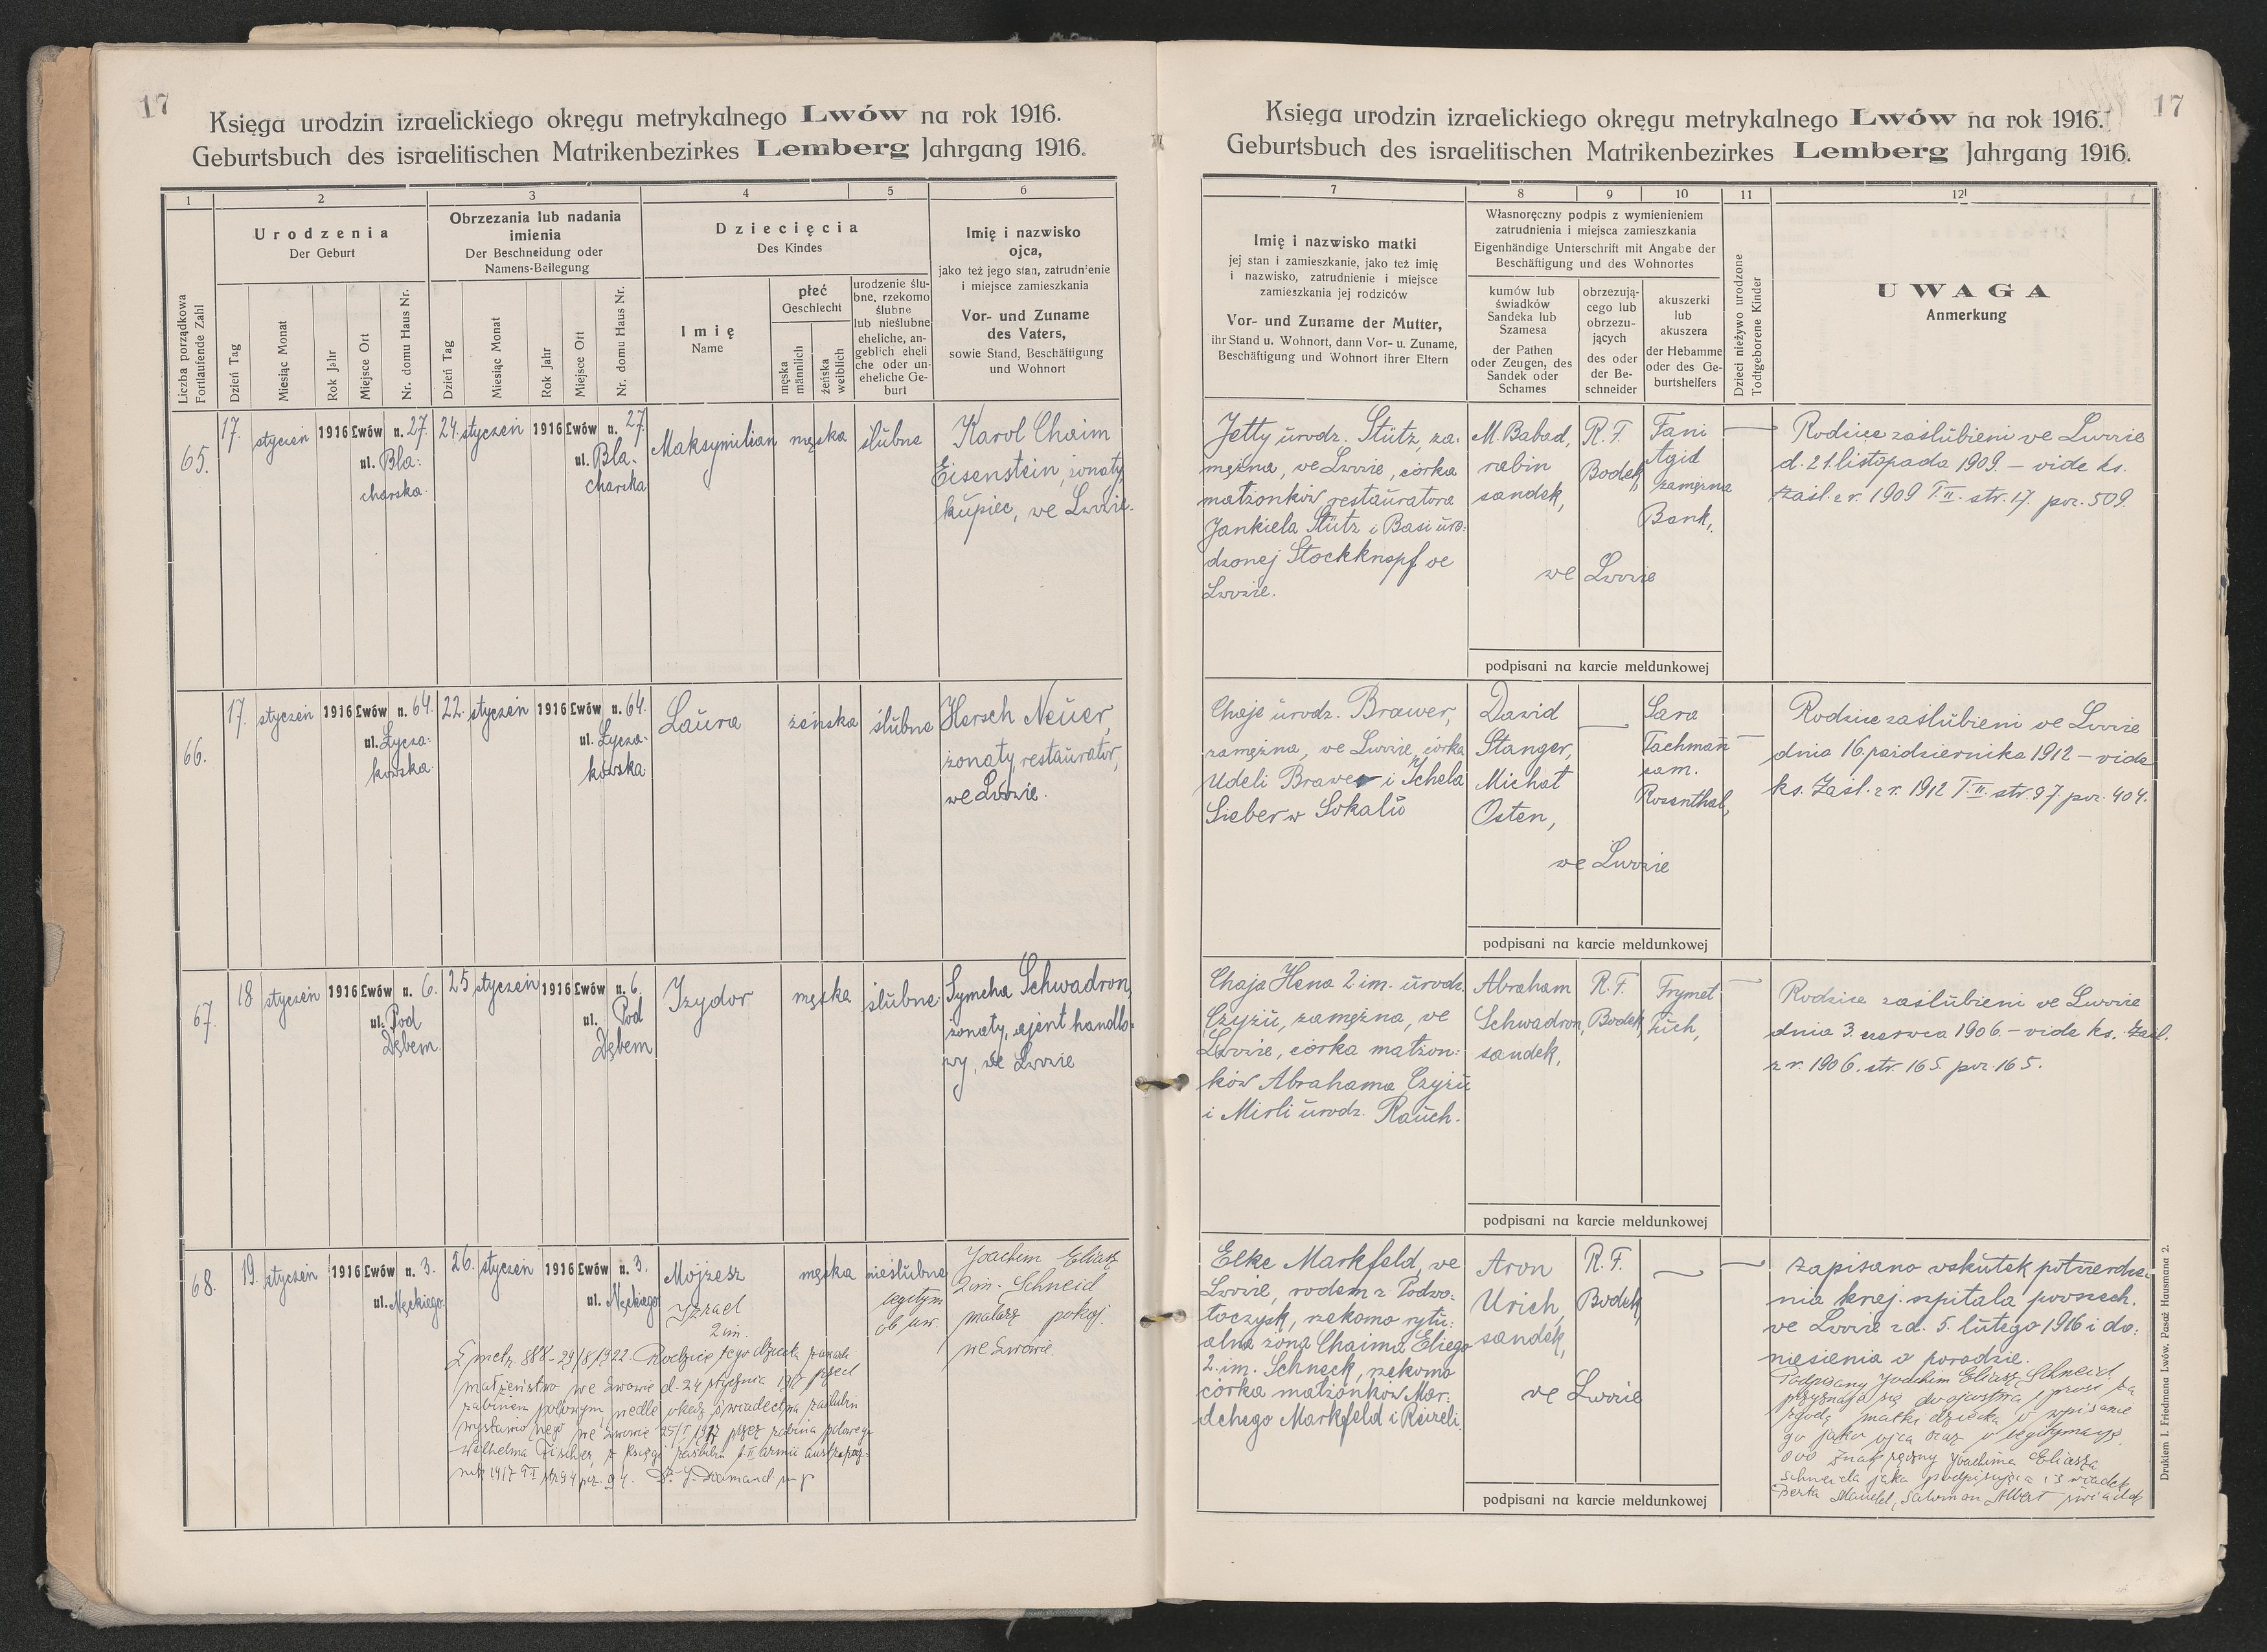 17
Księga urodzin izraelickiego okręgu metrykalnego Lwów na rok 1916.
Geburtsbuch des israelitischen Matrikenbezirkes Lemberg Jahrgang 1916.
1
2
3
4
5
6
Liczba porządkowa
Fortlaufende Zahl
Urodzenia
Der Geburt
Dzień Tag
Miesiąc Monat
Rok Jahr
Miejsce Ort
Nr. domu Haus Nr.
Obrzezania lub nadania
imienia
Der Beschneidung oder
Namens-Beilegung
Dzień Tag
Miesiąc Monat
Rok Jahr
Miejsce Ort
Nr. domu Haus Nr.
Dziecięcia
Des Kindes
Imię
Name
płeć
Geschlecht
męska
männlich
żeńska
weiblich
urodzenie ślu-
bne, rzekomo
ślubne
lub nieślubne
eheliche, an-
geblich eheli
che oder un-
eheliche Ge-
burt
Imię i nazwisko
ojca,
jako też jego stan, zatrudn'enie
i miejsce zamieszkania
Vor- und Zuname
des Vaters,
sowie Stand, Beschäftigung
und Wohnort
65.
17.
styczeń
1916
Lwów
n. 27.
ul. Bla-
charska.
24.
styczeń
1916
Lwów
n. 27.
ul. Bla-
charska
Maksymilian
męska
ślubne
Karol Chaim
Eisenstein, żonaty,
kupiec, we Lwowie.
66.
17.
styczeń
1916
Lwów
n. 64.
ul. Łycza-
kowska.
22.
styczeń
1916
Lwów
n. 64.
ul. Łycza-
kowska
Laura
żeńska
ślubne
Hersch Neuer,
żonaty, restaurator,
we Lwowie.
67.
18
styczeń
1916
Lwów
n. 6.
ul. Pod
Dębem
25
styczeń
1916
Lwów
n. 6.
ul. Pod
Dębem
Izydor
męska
ślubne
Symcha Schwadron,
żonaty, ajent handlo-
wy, we Lwowie
68.
19.
styczeń
1916
Lwów
n. 3.
ul. Nęckiego
26.
styczeń
1916
Lwów
n. 3.
ul. Nęckiego
Mojżesz
Izrael
2 im.
męska
nieślubne
legitym.
ob. uw.
Joachim Eliasz
2 im. Schneid
malarz pokoj.
we Lwowie.
L. metr. 888 - 29/8 1922. Rodzice tego dziecka zawarli
małżeństwo we Lwowie d. 24 stycznia 1917 przed
rabinem polowym, wedle okaz. świadectwa zaślubin
wystawionego we Lwowie 25/I 1917 przez rabina polowego
Wilhelma Fischer, z księgi zaślubin II armii
rok 1917 T I str 94 poz. 94. Dr. J. Diamand mp
17
Księga urodzin izraelickiego okręgu metrykalnego Lwów na rok 1916.
Geburtsbuch des israelitischen Matrikenbezirkes Lemberg Jahrgang 1916.
7
8
9
10
11
12
Imię i nazwisko matki
jej stan i zamieszkanie, jako też imię
i nazwisko, zatrudnienie i miejsce
zamieszkania jej rodziców
Vor- und Zuname der Mutter,
ihr Stand u. Wohnort, dann Vor- u. Zuname,
Beschäftigung und Wohnort ihrer Eltern
Własnoręczny podpis z wymienieniem
zatrudnienia i miejsca zamieszkania
Eigenhändige Unterschrift mit Angabe der
Beschäftigung und des Wohnortes
kumów lub
świadków
Sandeka lub
Szamesa
der Pathen
oder Zeugen, des
Sandek oder
Schames
obrzezują-
cego lub
obrzezu-
jących
des oder
der Be-
schneider
akuszerki
lub
akuszera
der Hebamme
oder des Ge-
burtshelfers
Dzieci nieżywo urodzone
Todtgeborene Kinder
UWAGA
Anmerkung
Jetty urodz. Stütz, za-
mężna, we Lwowie, córka
małżonków restauratora
Jankiela Stütz i Basi uro-
dzonej Stockknopf we
Lwowie.
M. Babad,
rabin
sandek,
R. F.
Bodek,
Fani
Agid
zamężna
Bank,
we Lwowie
podpisani na karcie meldunkowej
Rodzice zaślubieni we Lwowie
d. 21. listopada 1909. – vide ks.
zaśl. z r. 1909 T. II. str. 17. poz. 509.
Chaje urodz. Brawer,
zamężna, we Lwowie, córka
Udeli Brawer i Ichela
Sieber w Sokalu
Dawid
Stanger,
Michał
Osten,
Sara
Tachman
zam.
Rosenthal,
we Lwowie
podpisani na karcie meldunkowej
Rodzice zaślubieni we Lwowie
dnia 16. października 1912 – vide
ks. Zaśl. z r. 1912 T. II. str. 97 poz. 404.
Chaja Hena 2 im. urodz.
Czyżu, zamężna, we
Lwowie, córka małżon-
ków Abrahama Czyżu
i Mirli urodz. Rauch.
Abraham
Schwadron,
sandek,
R. F.
Bodek,
Frymet
Łuch,
podpisani na karcie meldunkowej
Rodzice zaślubieni we Lwowie
dnia 3. czerwca 1906 – vide ks. Zaśl.
z r. 1906. str. 165 poz. 165.
Elke Markfeld, we
Lwowie, rodem z Podwo-
łoczysk, rzekomo rytu-
alna żona Chaima Eliego
2. im. Schneck, rzekomo
córka małżonków Mar-
dchego Markfeld i Reizeli.
Aron
Urich,
sandek,
R. F.
Bodek,
we Lwowie
podpisani na karcie meldunkowej
Zapisano wskutek potwierdze-
nia kraj. szpitala powszech.
we Lwowie z d. 5. lutego 1916 i do-
niesienia o porodzie.
Podpisany Joachim Eliasz Schneid
przyznaje się do ojcostwa i prosi za
zgodą matki dziecka o wpisanie
go jako ojca oraz o legitymację
ooo Znak ręczny Joachima Eliasza
Schneida jako podpisująca i świadek
Berta Mandel, Salomon Albert świadek
Drukiem I. Friedmana Lwów, Pasaż Hausmana 2.